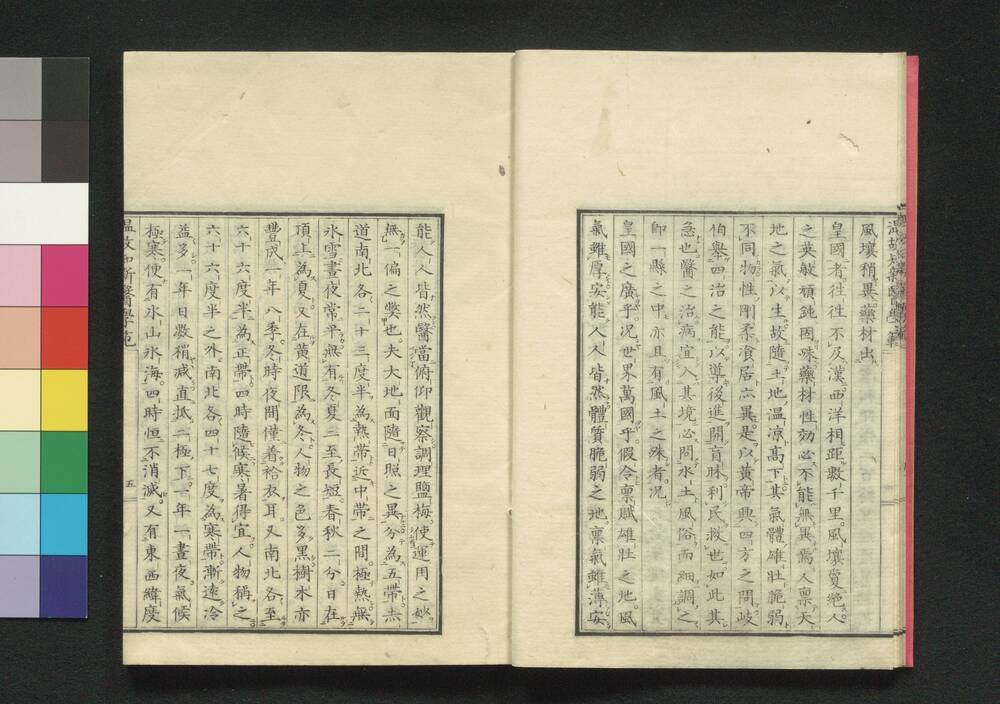 温故知新醫學範
風壤稍異藥材出
皇國者往往不及漢西洋相距數千里風壤夐絶人
之英敏頑鈍固咪藥材性効必不能無異焉人禀天
地之氣以生故隨土地温涼髙下其氣體雄壯脆弱
不同物性剛柔飡居亦異是以黄帝興四方之問岐
伯舉四治之能以導後進開盲昧利民救世如此其
急也醫之治病宜入其境必問水土風俗而細調之
即一縣之中亦且有風土之殊者況
皇國之廣乎况世界萬國乎假令禀賦雄壯之地風
氣雖厚安能人人皆然體質脆弱之地禀氣雖薄安
能人人皆然醫當俯仰觀察調理鹽梅使運用之妙
無一偏之獘也夫大地面隨日照之異分為五帶赤
道南北各二十三度半為熱帶近中帶之間極熱無
氷雪晝夜常平無有冬夏二至長短春秋二分日在
頂上為夏又在黄道限為冬人物之色多黒樹木亦
豐成一年八季冬時夜間僅着袷衣耳又南北各至
六十六度半為正帶四時隨候寒暑得宜人物稱之
六十六度半之外南北各四十七度為寒帶漸遠冷
益多一年日數稍減直抵二極下一年一晝夜氣候
極寒便有氷山氷海四時恒不消滅又有東西緯度
温故知新醫學範
五